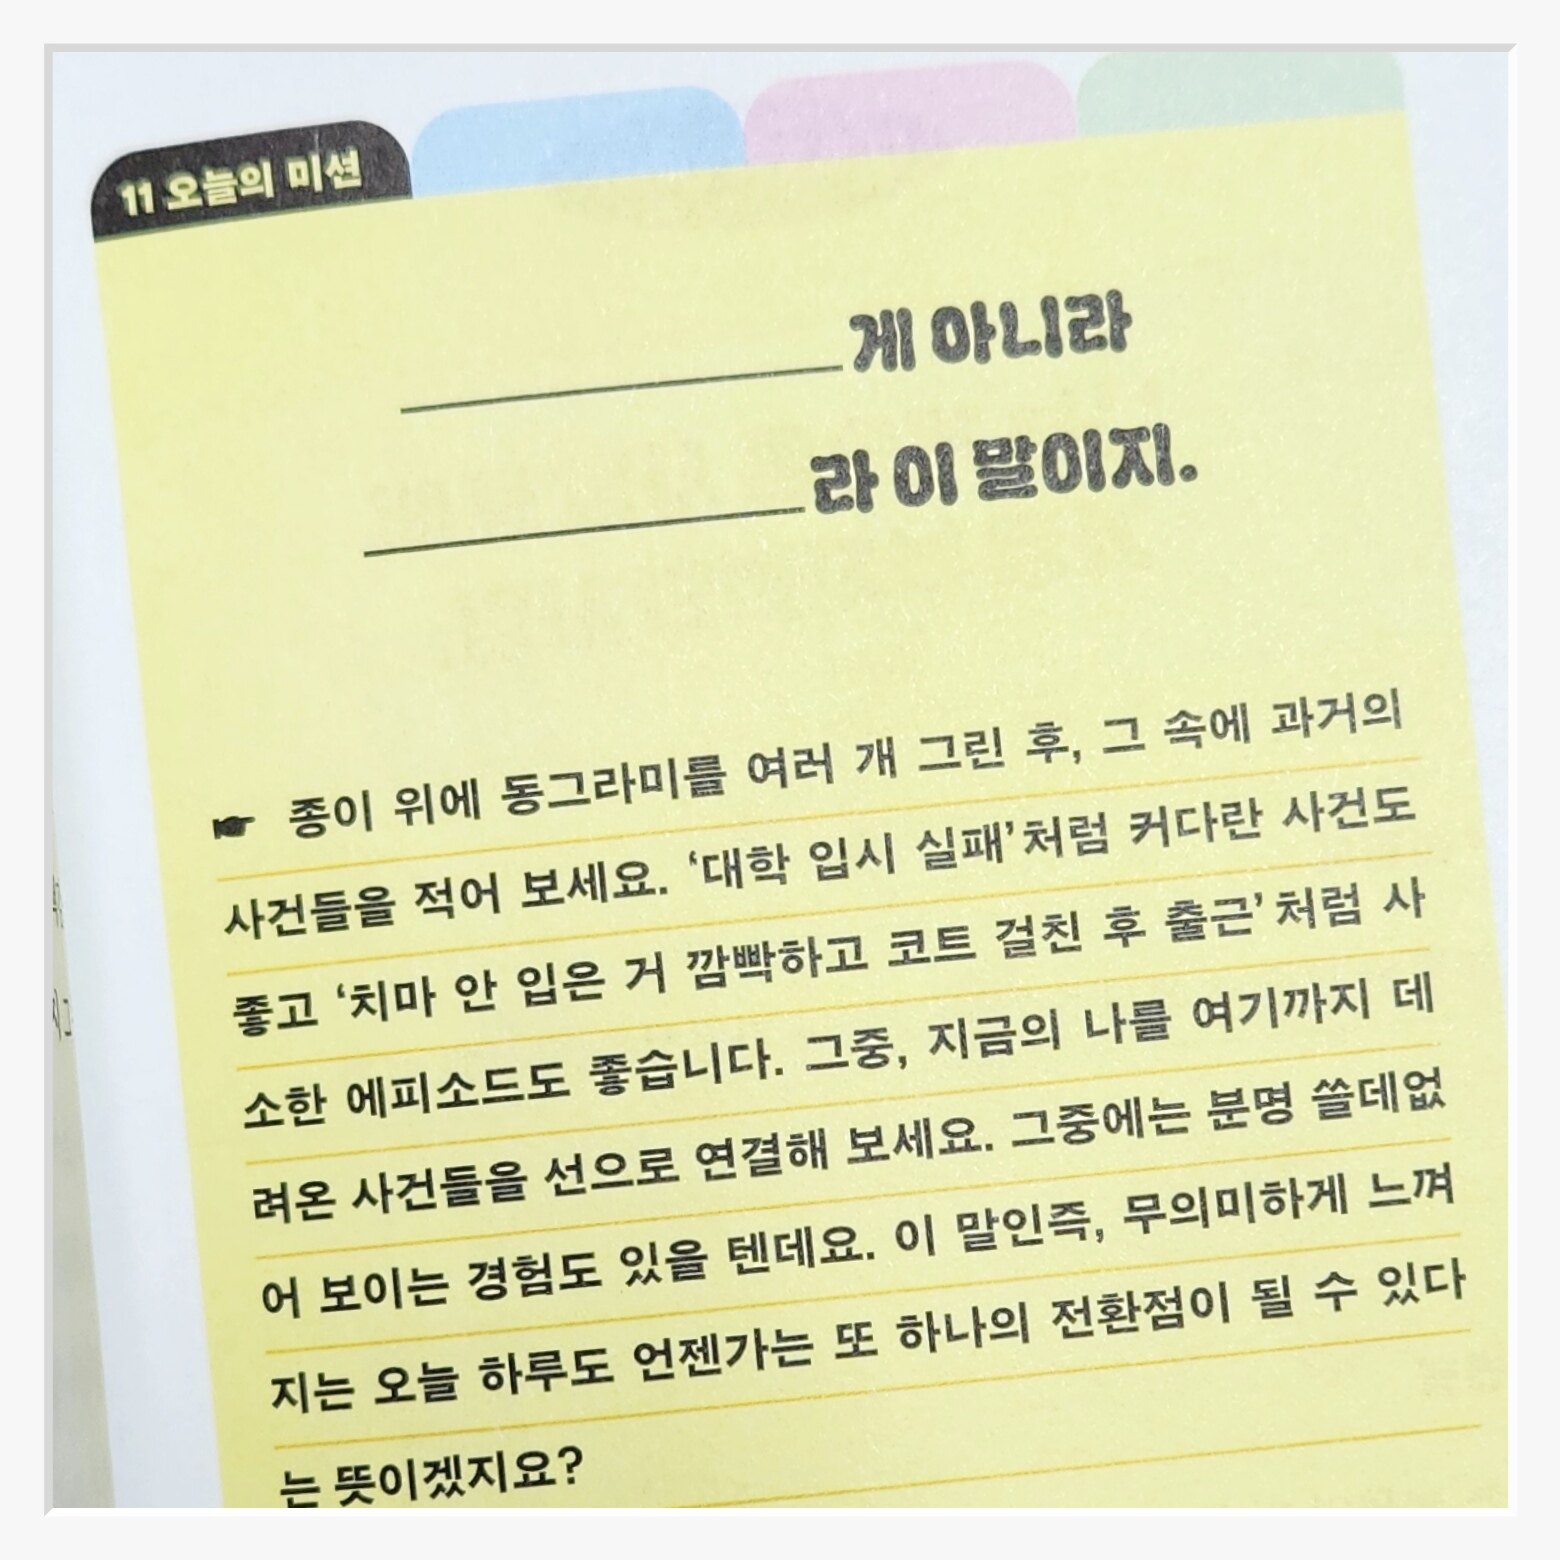 11 오늘의 미션
게 아니라
라 이 말이지.
종이 위에 동그라미를 여러 개 그린 후, 그 속에 과거의
사건들을 적어 보세요. ‘대학 입시 실패’처럼 커다란 사건도
좋고 ‘치마 안 입은 거 깜빡하고 코트 걸친 후 출근’처럼 사
소한 에피소드도 좋습니다. 그중, 지금의 나를 여기까지 데
려온 사건들을 선으로 연결해 보세요. 그중에는 분명 쓸데없
어 보이는 경험도 있을 텐데요. 이 말인즉, 무의미하게 느껴
지는 오늘 하루도 언젠가는 또 하나의 전환점이 될 수 있다
는 뜻이겠지요?